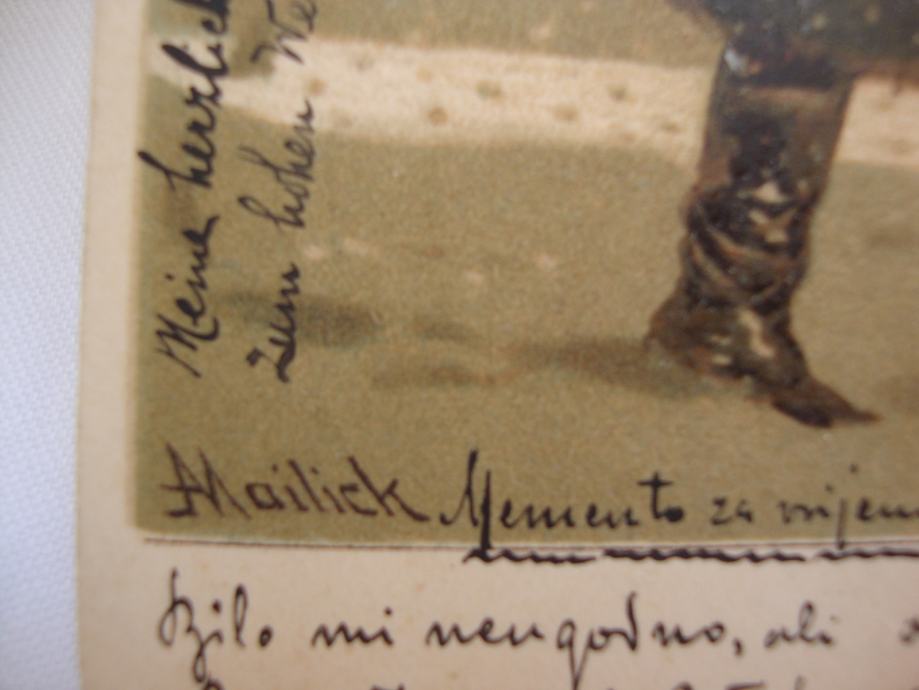 Meine herzlich
zum hohen We
AMailick
Memento za vrijem
Bilo mi neugodno, ali